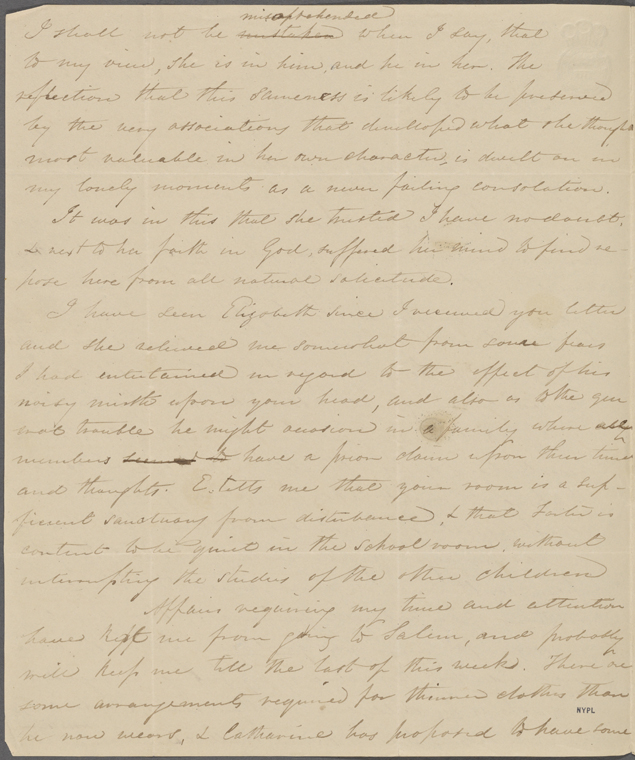 misapprehended
I shall not be mistaken when I say, that
to my view, she is in him, and he in her. The
reflection that this sameness is likely to be preserved
by the very associations that developed what she thought
most valuable in her own character, is dwelt on in
my lonely moments as a never failing consolation.
It was in this that she trusted I have no doubt,
& next to her faith in God, suffered her mind to find re-
pose here from all natural solicitude.
I have seen Elizabeth since I received your letter
and she relieved me somewhat from some fears
I had entertained in regard to the effect of his
noisy mirth upon your head, and also as to the gen
eral trouble he might occasion in a family where all
members seemed to have a prior claim upon their time
and thoughts. E. tells me that your room is a suf-
ficient sanctuary from disturbance, & that Foster is
content to be quiet in the school room, without
interrupting the studies of the other children
Affairs requiring my time and attention
have kept me from going to Salem, and probably
will keep me till the last of this week. There are
some arrangements required for thinner clothes than
he now wears, & Catharine has proposed to have some
NYPL